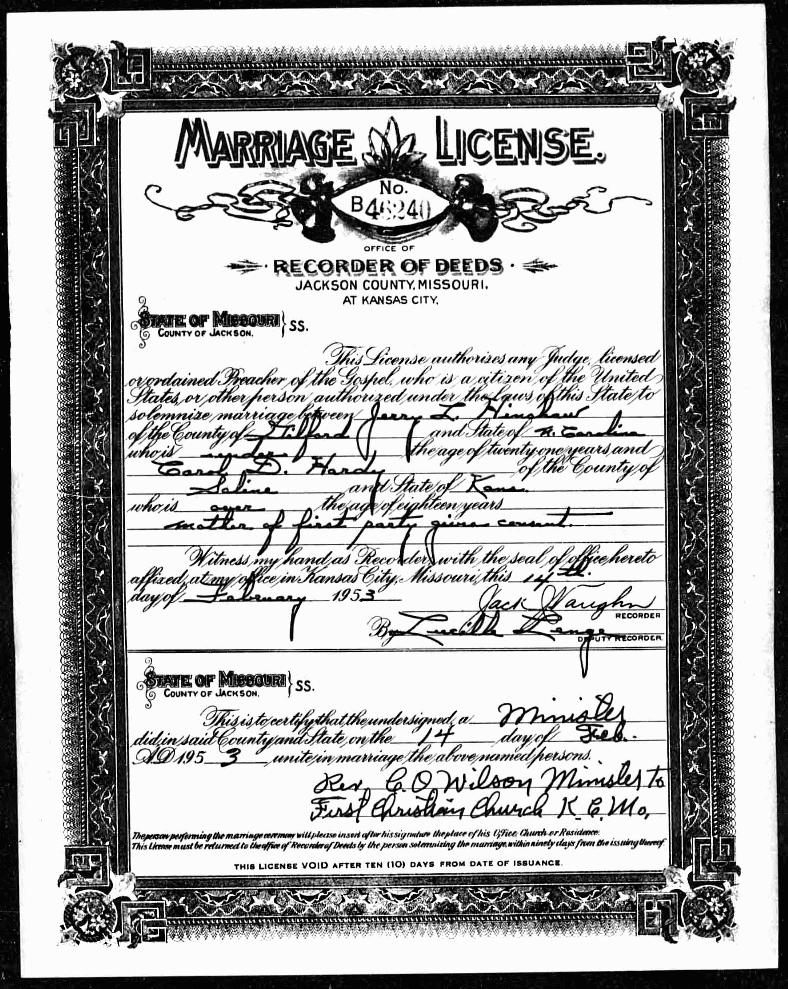 MARRIAGE LICENSE.
No.
B46240
OFFICE OF
RECORDER OF DEEDS
JACKSON COUNTY, MISSOURI,
AT KANSAS CITY,
STATE OF MISSOURI
COUNTY OF JACKSON. } SS.
This License authorizes any Judge, licensed
or ordained Preacher of the Gospel, who is a citizen of the United
States, or other person authorized under the laws of this State, to
solemnize marriage between Jerry L. Hinshaw
of the County of Gilford and State of N. Carolina
who is under the age of twenty one years and
Carol D. Hardy of the County of
Saline and State of Kans.
who is over the age of eighteen years
mother of first party gives consent.
Witness my hand as Recorder, with the seal of office hereto
affixed, at my office in Kansas City, Missouri, this 14th.
day of February 1953
Jack Vaughn
RECORDER
By Lucille Lenge
DEPUTY RECORDER
STATE OF MISSOURI
COUNTY OF JACKSON. } SS.
This is to certify that the undersigned, a Minister
did in said County and State, on the 14 day of Feb.
A.D. 1953 unite in marriage the above named persons.
Rev. C. O Wilson Minister to
First Christian Church K. C. Mo,
The person performing the marriage ceremony will please insert after his signature the place of his Office, Church or Residence.
This License must be returned to the office of Recorder of Deeds by the person solemnizing the marriage, within ninety days from the issuing thereof
THIS LICENSE VOID AFTER TEN (10) DAYS FROM DATE OF ISSUANCE.